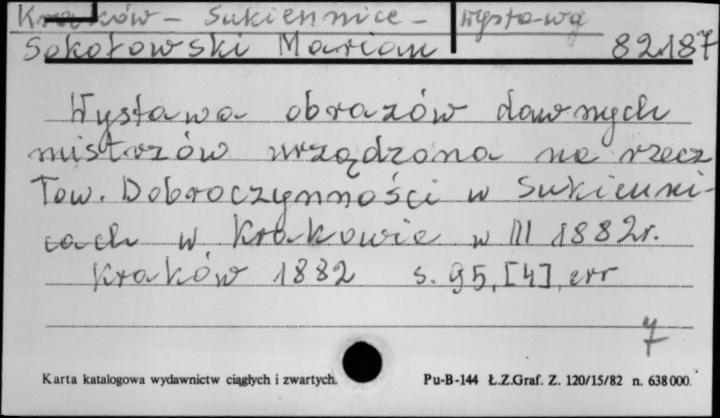 Kraków - Sukiennice - Wystawa
Sokołowski Marian 82187
Wystawa obrazów dawnych
mistrzów urządzona na rzecz
Tow. Dobroczynności w Sukienni-
cach w Krakowie w III 1882r.
Kraków 1882 s. 95, [4], err
7
Karta katalogowa wydawnictw ciągłych i zwartych. Pu-B-144 Ł.Z.Graf. Z. 120/15/82 n. 638000.